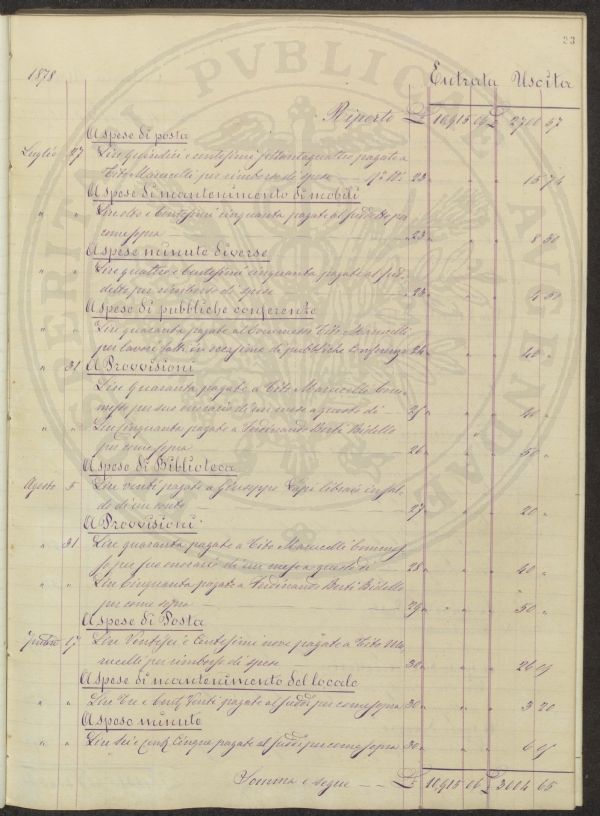 23
1878
Entrata Uscita
Riporto £ 10,915 06 £ 2700 57
A Spese di posta
Luglio 27 Lire Quindici e centesimi settantaquattro pagate a
Tito Marucelli per rimborso di spese 23 15 74
A Spese di mantenimento di mobili
" " Lire otto e Centesimi cinquanta pagate al suddetto per
come sopra 23 " " " 8 50
A Spese minute diverse
" " Lire quattro e Centesimi cinquanta pagate al sud-
detto per rimborso di spese 23 " " " 4 50
A Spese di pubbliche conferenze
" " Lire quaranta pagate al Commesso Tito Marucelli
per lavori fatti in occasione di pubbliche Conferenze 24 " " " 40 "
" 31 A Provvisioni
Lire Quaranta pagate a Tito Marucelli Com-
messo per suo onorario di un mese a questo dì 25 " " " 40 "
" " Lire Cinquanta pagate a Ferdinando Berti Bidello
per come sopra 26 " " " 50 "
A Spese di Biblioteca
Agosto 5 Lire venti pagate a Giuseppe libraio in sal-
do di un conto 27 " " " 20 "
A Provvisioni
" 31 Lire quaranta pagate a Tito Marucelli Commes-
so per suo onorario di un mese a questo dì 28 " " " 40 "
" " Lire Cinquanta pagate a Ferdinando Berti Bidello
per come sopra 29 " " " 50 "
A Spese di Posta
7mbre 17 Lire Ventisei e Centesimi nove pagate a Tito Ma-
rucelli per rimborso di spese 30 " " " 26 09
A Spese di mantenimento del locale
" " Lire Tre e Cent. Venti pagate al sudd. per come sopra 30 " " " 3 20
A Spese minute
" " Lire Sei e Cent. Cinque pagate al sudd. per come sopra 30 " " " 6 05
Somma e segue £ 10,915 06 £ 3004 65